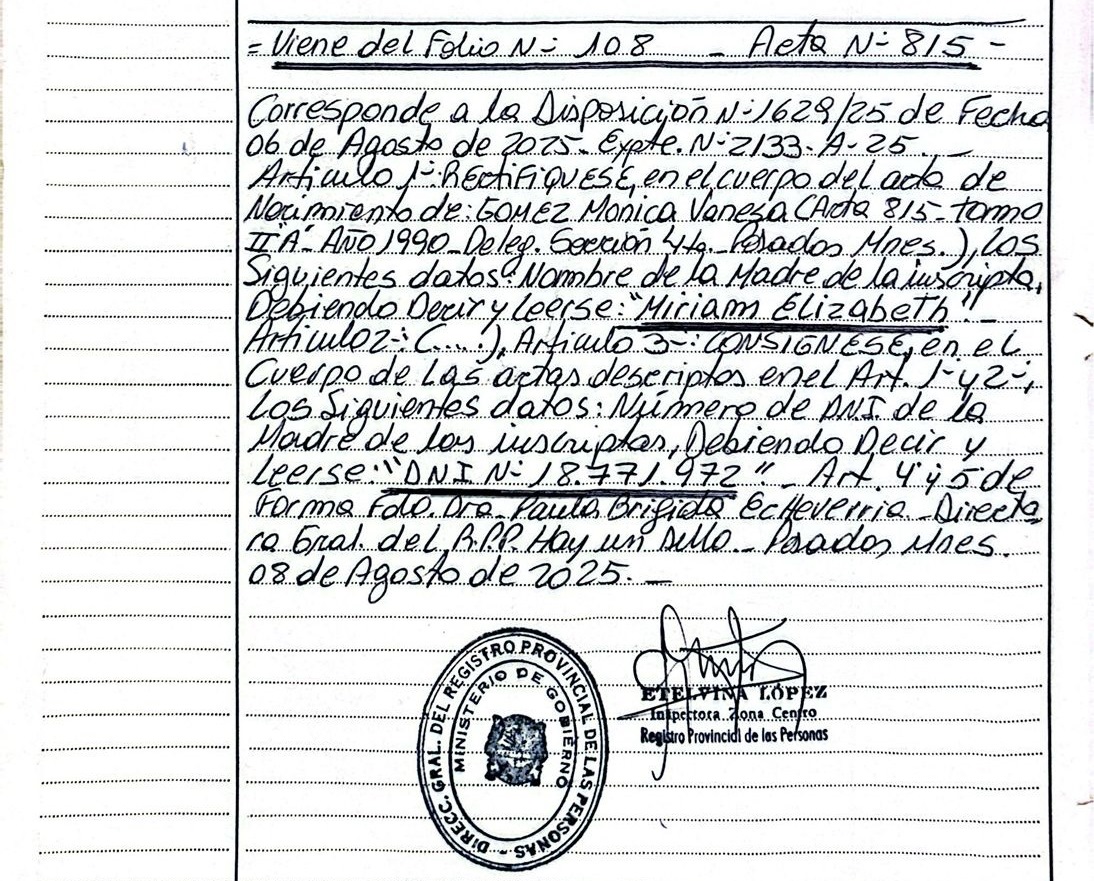 = Viene del Folio N-: 108 - Acta N-: 815 -
Corresponde a la Disposición N-: 1629/25 de Fecha
06 de Agosto de 2025- Expte. N-: 2133-A-25. -
Artículo 1-: RECTIFIQUESE, en el cuerpo del acta de
Nacimiento de: GOMEZ Monica Vanesa (Acta 815- tomo
II "A"- AÑO 1990- Deleg. Sección 4ta- Posadas Mnes.), los
Siguientes datos: Nombre de la Madre de la inscripta,
Debiendo Decir y Leerse: "Miriam Elizabeth" -
Artículo 2-: (....), Artículo 3-: CONSIGNESE, en el
Cuerpo de Las actas descriptas en el Art. 1- y 2-,
los Siguientes datos: Número de DNI. de la
Madre de las inscriptas, Debiendo Decir y
Leerse: "DNI N-: 18.771.972" - Art. 4 y 5 de
Forma Fdo. Dra. Paula Brigida Echeverria - Directo
ra Gral. del R.P.P. Hay un sello - Posadas Mnes.
08 de Agosto de 2025. -
DIRECC. GRAL. DEL REGISTRO PROVINCIAL DE LAS PERSONAS -
MINISTERIO DE GOBIERNO
ETELVINA LÓPEZ
Inspectora Zona Centro
Registro Provincial de las Personas